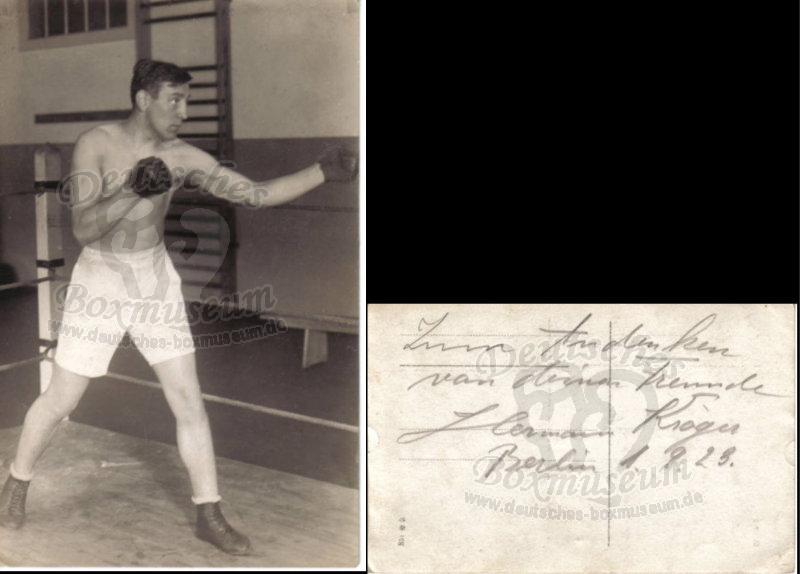 Deutsches
Boxmuseum
www.deutsches-boxmuseum.de
Zum Andenken
von deinem Freunde
Hermann Kröger
Berlin 1. 9. 23.
Deutsches
Boxmuseum
www.deutsches-boxmuseum.de